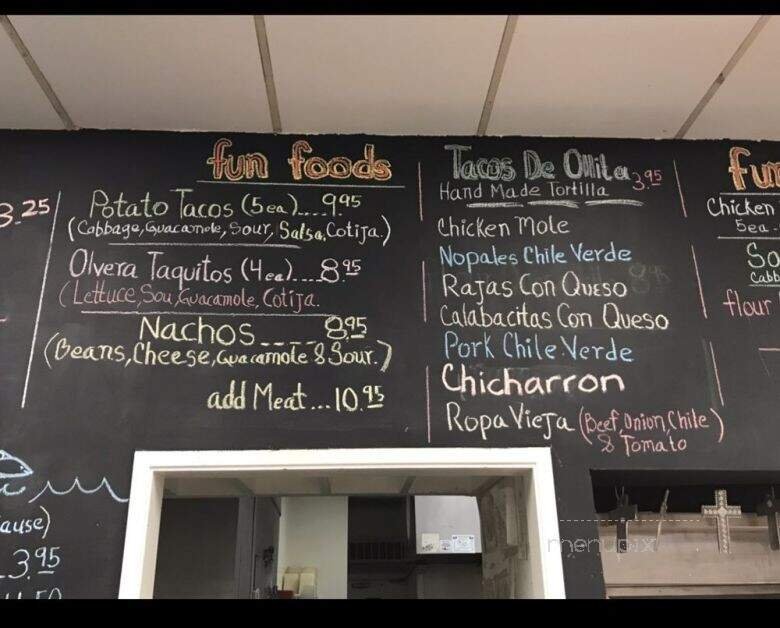 3.25
fun foods
Potato Tacos (5ea)....9.95
(Cabbage, Guacamole, Sour, Salsa, Cotija.)
Olvera Taquitos (4ea)....8.95
(Lettuce, Sou, Guacamole, Cotija.
Nachos____8.95
(Beans, Cheese, Guacamole & Sour.)
add Meat...10.95
Tacos De Ollita 3.95
Hand Made Tortilla
Chicken Mole
Nopales Chile Verde
Rajas Con Queso
Calabacitas Con Queso
Pork Chile Verde
Chicharron
Ropa Vieja (Beef, Onion, Chile)
& Tomato
fun
Chicken
5ea.
So
Cabb
flour
ause)
3.95
menupix